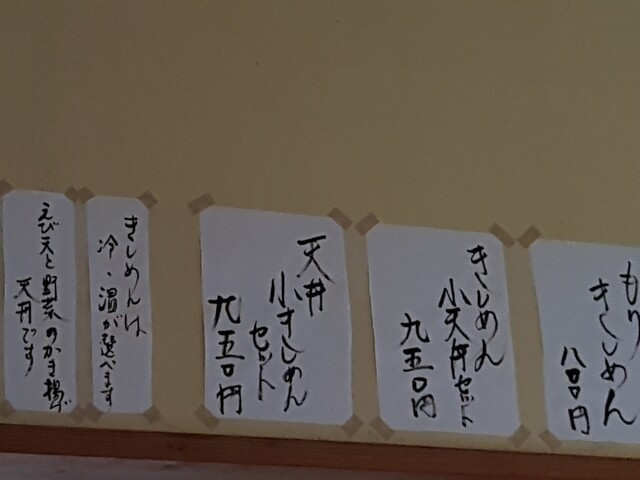 もり
きしめん
八〇〇円
きしめん
小天丼セット
九五〇円
天丼
小きしめん
セット
九五〇円
きしめんは
冷・温が選べます
えび天と野菜のかき揚げ
天丼です